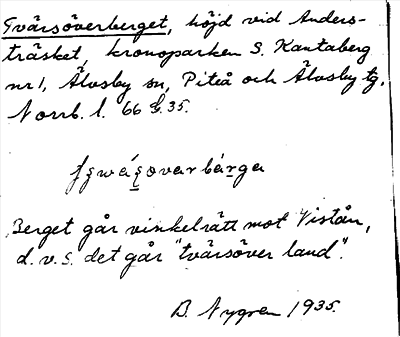 Tvärsöverberget, höjd vid Anders-
träsket, kronoparken S. Kantaberg
nr 1, Älvsby sn, Piteå och Älvsby tg,
Norrb. l. 66 35.
Berget går vinkelrätt mot Vistån,
d. v. s. det går "tvärsöver land".
B. Nygren 1935.